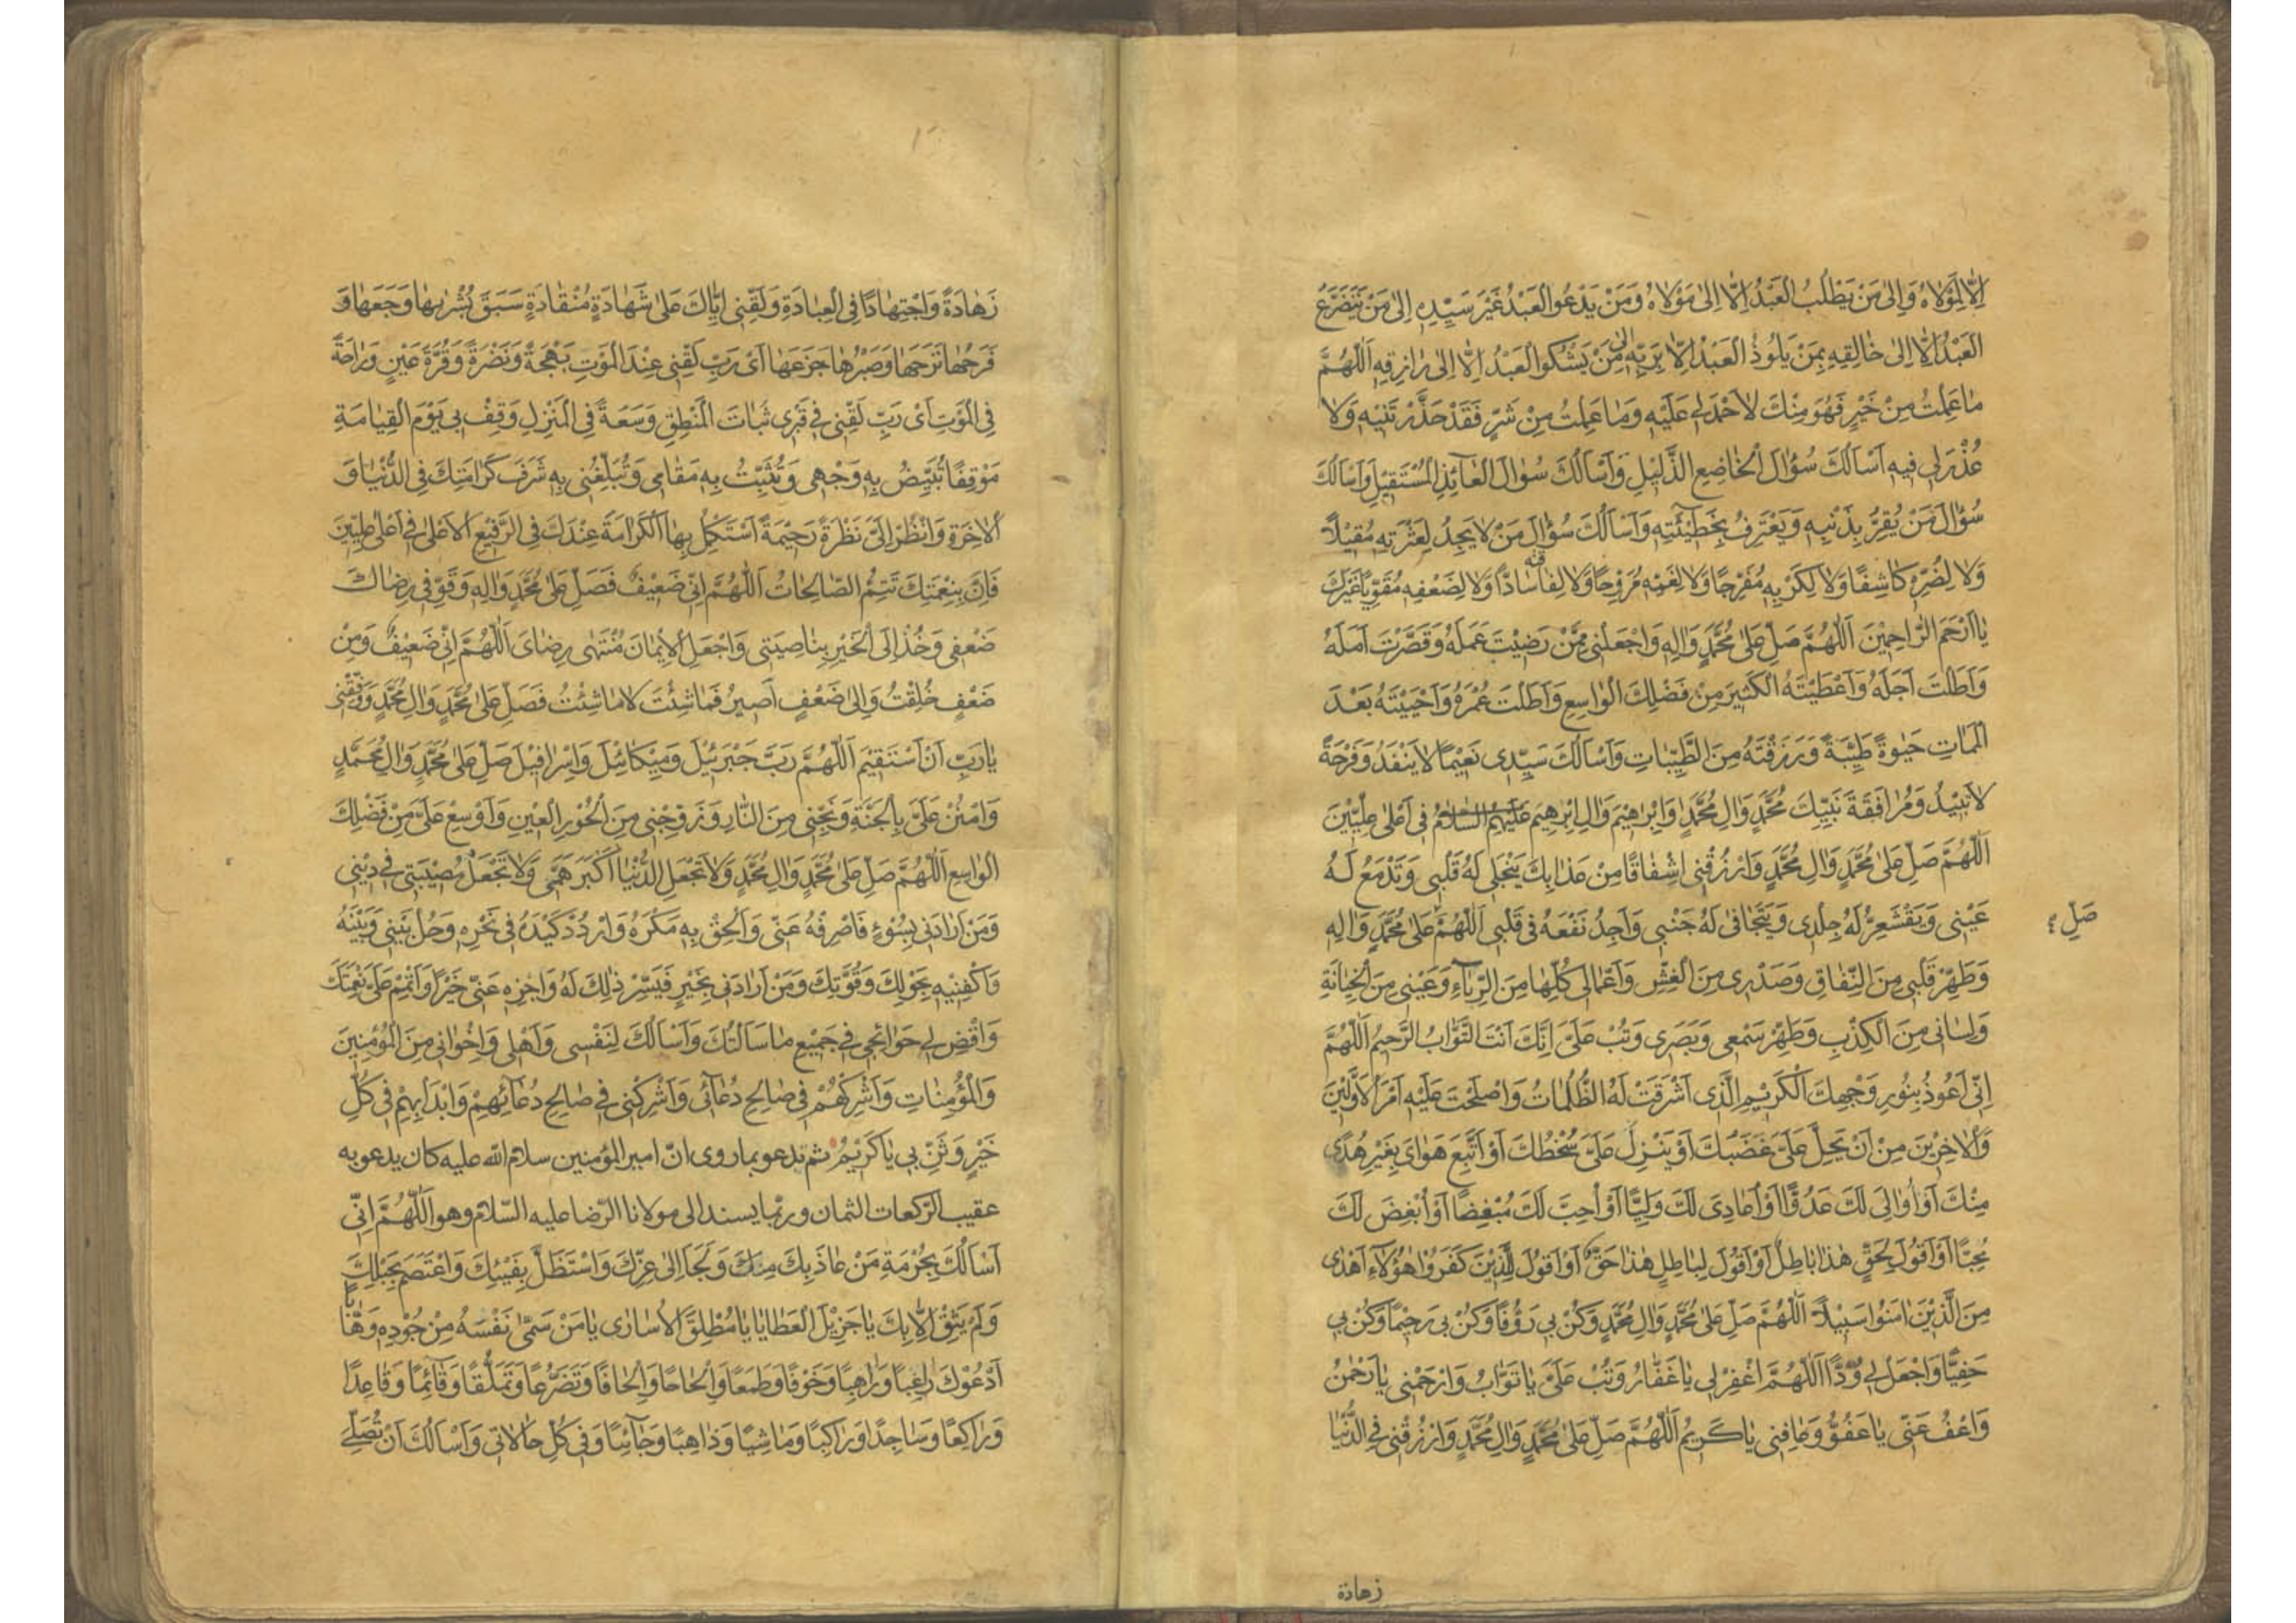 اِلَّا لِمَوْلَاهُ وَاِلىٰ مَنْ يَطْلُبُ الْعَبْدُ اِلَّا اِلىٰ مَوْلَاهُ وَمَنْ يَدْعُو الْعَبْدُ غَيْرَ سَيِّدِهِ اِلىٰ مَنْ يَتَضَرَّعُ
الْعَبْدُ اِلَّا اِلىٰ خَالِقِهِ بِمَنْ يَلُوذُ الْعَبْدُ اِلَّا بِرَبِّهِ اِلىٰ مَنْ يَشْكُو الْعَبْدُ اِلَّا اِلىٰ رَازِقِهِ اَللّٰهُمَّ
مَا عَمِلْتُ مِنْ خَيْرٍ فَهُوَ مِنْكَ لَا حَمْدَ لِي عَلَيْهِ وَمَا عَمِلْتُ مِنْ شَرٍّ فَقَدْ حَذَّرْتَنِيهِ وَلَا
عُذْرَ لِي فِيهِ اَسْاَلُكَ سُؤَالَ الْخَاضِعِ الذَّلِيلِ وَاَسْاَلُكَ سُؤَالَ الْعَآئِذِ الْمُسْتَقِيلِ وَاَسْاَلُكَ
سُؤَالَ مَنْ يُقِرُّ بِذَنْبِهِ وَيَعْتَرِفُ بِخَطِيئَتِهِ وَاَسْاَلُكَ سُؤَالَ مَنْ لَا يَجِدُ لِعَثْرَتِهِ مُقِيلًا
وَلَا لِضُرِّهِ كَاشِفًا وَلَا لِكَرْبِهِ مُفَرِّجًا وَلَا لِغَمِّهِ مُرَوِّحًا وَلَا لِفَاقَتِهِ سَادًّا وَلَا لِضَعْفِهِ مُقَوِّيًا غَيْرَكَ
يَا اَرْحَمَ الرَّاحِمِينَ اَللّٰهُمَّ صَلِّ عَلىٰ مُحَمَّدٍ وَالِهِ وَاجْعَلْنِي مِمَّنْ رَضِيتَ عَمَلَهُ وَقَصَّرْتَ اَمَلَهُ
وَاَطَلْتَ اَجَلَهُ وَاَعْطَيْتَهُ الْكَثِيرَ مِنْ فَضْلِكَ الْوَاسِعِ وَاَطَلْتَ عُمْرَهُ وَاَحْيَيْتَهُ بَعْدَ
الْمَمَاتِ حَيٰوةً طَيِّبَةً وَرَزَقْتَهُ مِنَ الطَّيِّبَاتِ وَاَسْاَلُكَ سَيِّدِي نَعِيمًا لَا يَنْفَدُ وَفَرْحَةً
لَا تَبِيدُ وَمُرَافَقَةَ نَبِيِّكَ مُحَمَّدٍ وَالِ مُحَمَّدٍ وَاِبْرَاهِيمَ وَالِ اِبْرٰهِيمَ عَلَيْهِمُ السَّلَامُ فِي اَعْلىٰ عِلِّيِّينَ
اَللّٰهُمَّ صَلِّ عَلىٰ مُحَمَّدٍ وَالِ مُحَمَّدٍ وَارْزُقْنِي اِشْفَاقًا مِنْ عَذَابِكَ يَنْجَلِي لَهُ قَلْبِي وَتَدْمَعُ لَهُ
عَيْنِي وَيَقْشَعِرُّ لَهُ جِلْدِي وَيَتَجَافىٰ لَهُ جَنْبِي وَاَجِدُ نَفْعَهُ فِي قَلْبِي اَللّٰهُمَّ عَلىٰ مُحَمَّدٍ وَالِهِ
صَلِّ
وَطَهِّرْ قَلْبِي مِنَ النِّفَاقِ وَصَدْرِي مِنَ الْغِشِّ وَاَعْمَالِي كُلَّهَا مِنَ الرِّيَآءِ وَعَيْنِي مِنَ الْخِيَانَةِ
وَلِسَانِي مِنَ الْكِذْبِ وَطَهِّرْ سَمْعِي وَبَصَرِي وَتُبْ عَلَيَّ اِنَّكَ اَنْتَ التَّوَّابُ الرَّحِيمُ اَللّٰهُمَّ
اِنِّي اَعُوذُ بِنُورِ وَجْهِكَ الْكَرِيمِ الَّذِي اَشْرَقَتْ لَهُ الظُّلُمَاتُ وَاَصْلَحْتَ عَلَيْهِ اَمْرَ الْاَوَّلِينَ
وَالْاٰخِرِينَ مِنْ اَنْ يَحِلَّ عَلَيَّ غَضَبُكَ اَوْ يَنْزِلَ عَلَيَّ سُخْطُكَ اَوْ اَتَّبِعَ هَوَايَ بِغَيْرِ هُدًى
مِنْكَ اَوْ اُوَالِيَ لَكَ عَدُوًّا اَوْ اُعَادِيَ لَكَ وَلِيًّا اَوْ اُحِبَّ لَكَ مُبْغِضًا اَوْ اُبْغِضَ لَكَ
مُحِبًّا اَوْ اَقُولَ لِحَقٍّ هٰذَا بَاطِلٌ اَوْ اَقُولَ لِبَاطِلٍ هٰذَا حَقٌّ اَوْ اَقُولَ لِلَّذِينَ كَفَرُوا هٰؤُلَآءِ اَهْدىٰ
مِنَ الَّذِينَ اٰمَنُوا سَبِيلًا اَللّٰهُمَّ صَلِّ عَلىٰ مُحَمَّدٍ وَالِ مُحَمَّدٍ وَكُنْ بِي رَؤُفًا وَكُنْ بِي رَحِيمًا وَكُنْ بِي
حَفِيًّا وَاجْعَلْ لِي وُدًّا اَللّٰهُمَّ اغْفِرْ لِي يَا غَفَّارُ وَتُبْ عَلَيَّ يَا تَوَّابُ وَارْحَمْنِي يَا رَحْمٰنُ
وَاعْفُ عَنِّي يَا عَفُوُّ وَعَافِنِي يَا كَرِيمُ اَللّٰهُمَّ صَلِّ عَلىٰ مُحَمَّدٍ وَالِ مُحَمَّدٍ وَارْزُقْنِي فِي الدُّنْيَا
زهادة
زَهَادَةً وَاجْتِهَادًا فِي الْعِبَادَةِ وَلَقِّنِي اِيَّاكَ عَلىٰ شَهَادَةٍ مُنْقَادَةٍ سَبَقَ بُشْرٰيهَا وَجَعَهَا وَ
فَرَحُهَا تَرَحَهَا وَصَبْرُهَا جَزَعَهَا اَيْ رَبِّ لَقِّنِي عِنْدَ الْمَوْتِ بَهْجَةً وَنَضْرَةً وَقُرَّةَ عَيْنٍ وَرَاحَةً
فِي الْمَوْتِ اَيْ رَبِّ لَقِّنِي فِي قَبْرِي ثَبَاتَ الْمَنْطِقِ وَسَعَةً فِي الْمَنْزِلِ وَقِفْ بِي يَوْمَ الْقِيَامَةِ
مَوْقِفًا تُبَيِّضُ بِهِ وَجْهِي وَتُثَبِّتُ بِهِ مَقَامِي وَتُبَلِّغُنِي بِهِ شَرَفَ كَرَامَتِكَ فِي الدُّنْيَا وَ
الْاٰخِرَةِ وَانْظُرْ اِلَيَّ نَظْرَةً رَحِيمَةً اَسْتَكْمِلُ بِهَا الْكَرَامَةَ عِنْدَكَ فِي الرَّفِيعِ الْاَعْلىٰ فِي اَعْلىٰ عِلِّيِّينَ
فَاِنَّ بِنِعْمَتِكَ تَتِمُّ الصَّالِحَاتُ اَللّٰهُمَّ اِنِّي ضَعِيفٌ فَصَلِّ عَلىٰ مُحَمَّدٍ وَالِهِ وَقَوِّ فِي رِضَاكَ
ضَعْفِي وَخُذْ اِلَى الْخَيْرِ بِنَاصِيَتِي وَاجْعَلِ الْاِيمَانَ مُنْتَهىٰ رِضَايَ اَللّٰهُمَّ اِنِّي ضَعِيفٌ وَمِنْ
ضَعْفٍ خُلِقْتُ وَاِلىٰ ضَعْفٍ اَصِيرُ فَمَا شِئْتَ لَا مَا شِئْتُ فَصَلِّ عَلىٰ مُحَمَّدٍ وَالِ مُحَمَّدٍ وَوَفِّقْنِي
يَا رَبِّ اَنْ اَسْتَقِيمَ اَللّٰهُمَّ رَبَّ جَبْرَئِيلَ وَمِيكَائِيلَ وَاِسْرَافِيلَ صَلِّ عَلىٰ مُحَمَّدٍ وَالِ مُحَمَّدٍ
وَامْنُنْ عَلَيَّ بِالْجَنَّةِ وَنَجِّنِي مِنَ النَّارِ وَزَوِّجْنِي مِنَ الْحُورِ الْعِينِ وَاَوْسِعْ عَلَيَّ مِنْ فَضْلِكَ
الْوَاسِعِ اَللّٰهُمَّ صَلِّ عَلىٰ مُحَمَّدٍ وَالِ مُحَمَّدٍ وَلَا تَجْعَلِ الدُّنْيَا اَكْبَرَ هَمِّي وَلَا تَجْعَلْ مُصِيبَتِي فِي دِينِي
وَمَنْ اَرَادَنِي بِسُوْءٍ فَاصْرِفْهُ عَنِّي وَاَلْحِقْ بِهِ مَكْرَهُ وَارْدُدْ كَيْدَهُ فِي نَحْرِهِ وَحُلْ بَيْنِي وَبَيْنَهُ
وَاكْفِنِيهِ بِحَوْلِكَ وَقُوَّتِكَ وَمَنْ اَرَادَنِي بِخَيْرٍ فَيَسِّرْ ذٰلِكَ لَهُ وَاجْزِهِ عَنِّي خَيْرًا وَاَتْمِمْ عَلَيَّ نِعْمَتَكَ
وَاقْضِ لِي حَوَائِجِي فِي جَمِيعِ مَا سَاَلْتُكَ وَاَسْاَلُكَ لِنَفْسِي وَاَهْلِي وَاِخْوَانِي مِنَ الْمُؤْمِنِينَ
وَالْمُؤْمِنَاتِ وَاَشْرِكْهُمْ فِي صَالِحِ دُعَآئِي وَاَشْرِكْنِي فِي صَالِحِ دُعَآئِهِمْ وَابْدَاْ بِهِمْ فِي كُلِّ
خَيْرٍ وَثَنِّ بِي يَا كَرِيمُ ثم تدعو بما روى انّ امير المؤمنين سلام الله عليه كان يدعو به
عقيب الرّكعات الثمان وربّما يسند الى مولانا الرّضا عليه السّلام وهو اَللّٰهُمَّ اِنِّي
اَسْاَلُكَ بِحُرْمَةِ مَنْ عَاذَ بِكَ مِنْكَ وَلَجَاَ اِلىٰ عِزِّكَ وَاسْتَظَلَّ بِفَيْئِكَ وَاعْتَصَمَ بِحَبْلِكَ
وَلَمْ يَثِقْ اِلَّا بِكَ يَا جَزِيلَ الْعَطَايَا يَا مُطْلِقَ الْاُسَارىٰ يَا مَنْ سَمّىٰ نَفْسَهُ مِنْ جُودِهِ وَهَّابًا
اَدْعُوكَ رَاغِبًا وَرَاهِبًا وَخَوْفًا وَطَمَعًا وَاِلْحَاحًا وَاِلْحَافًا وَتَضَرُّعًا وَتَمَلُّقًا وَقَآئِمًا وَقَاعِدًا
وَرَاكِعًا وَسَاجِدًا وَرَاكِبًا وَمَاشِيًا وَذَاهِبًا وَجَآئِيًا وَفِي كُلِّ حَالَاتِي وَاَسْاَلُكَ اَنْ تُصَلِّيَ